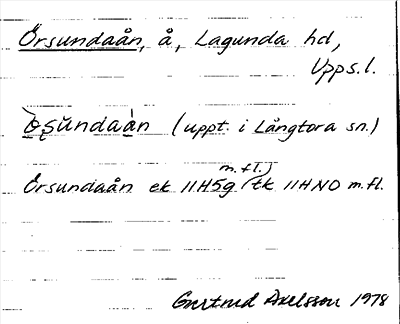 Örsundaån, å, Lagunda hd,
Upps.l.
(uppt. i Långtora sn.)
m.fl.)
Örsundaån ek 11H5g (tk 11HNO m.fl.
Gertrud Axelsson 1978